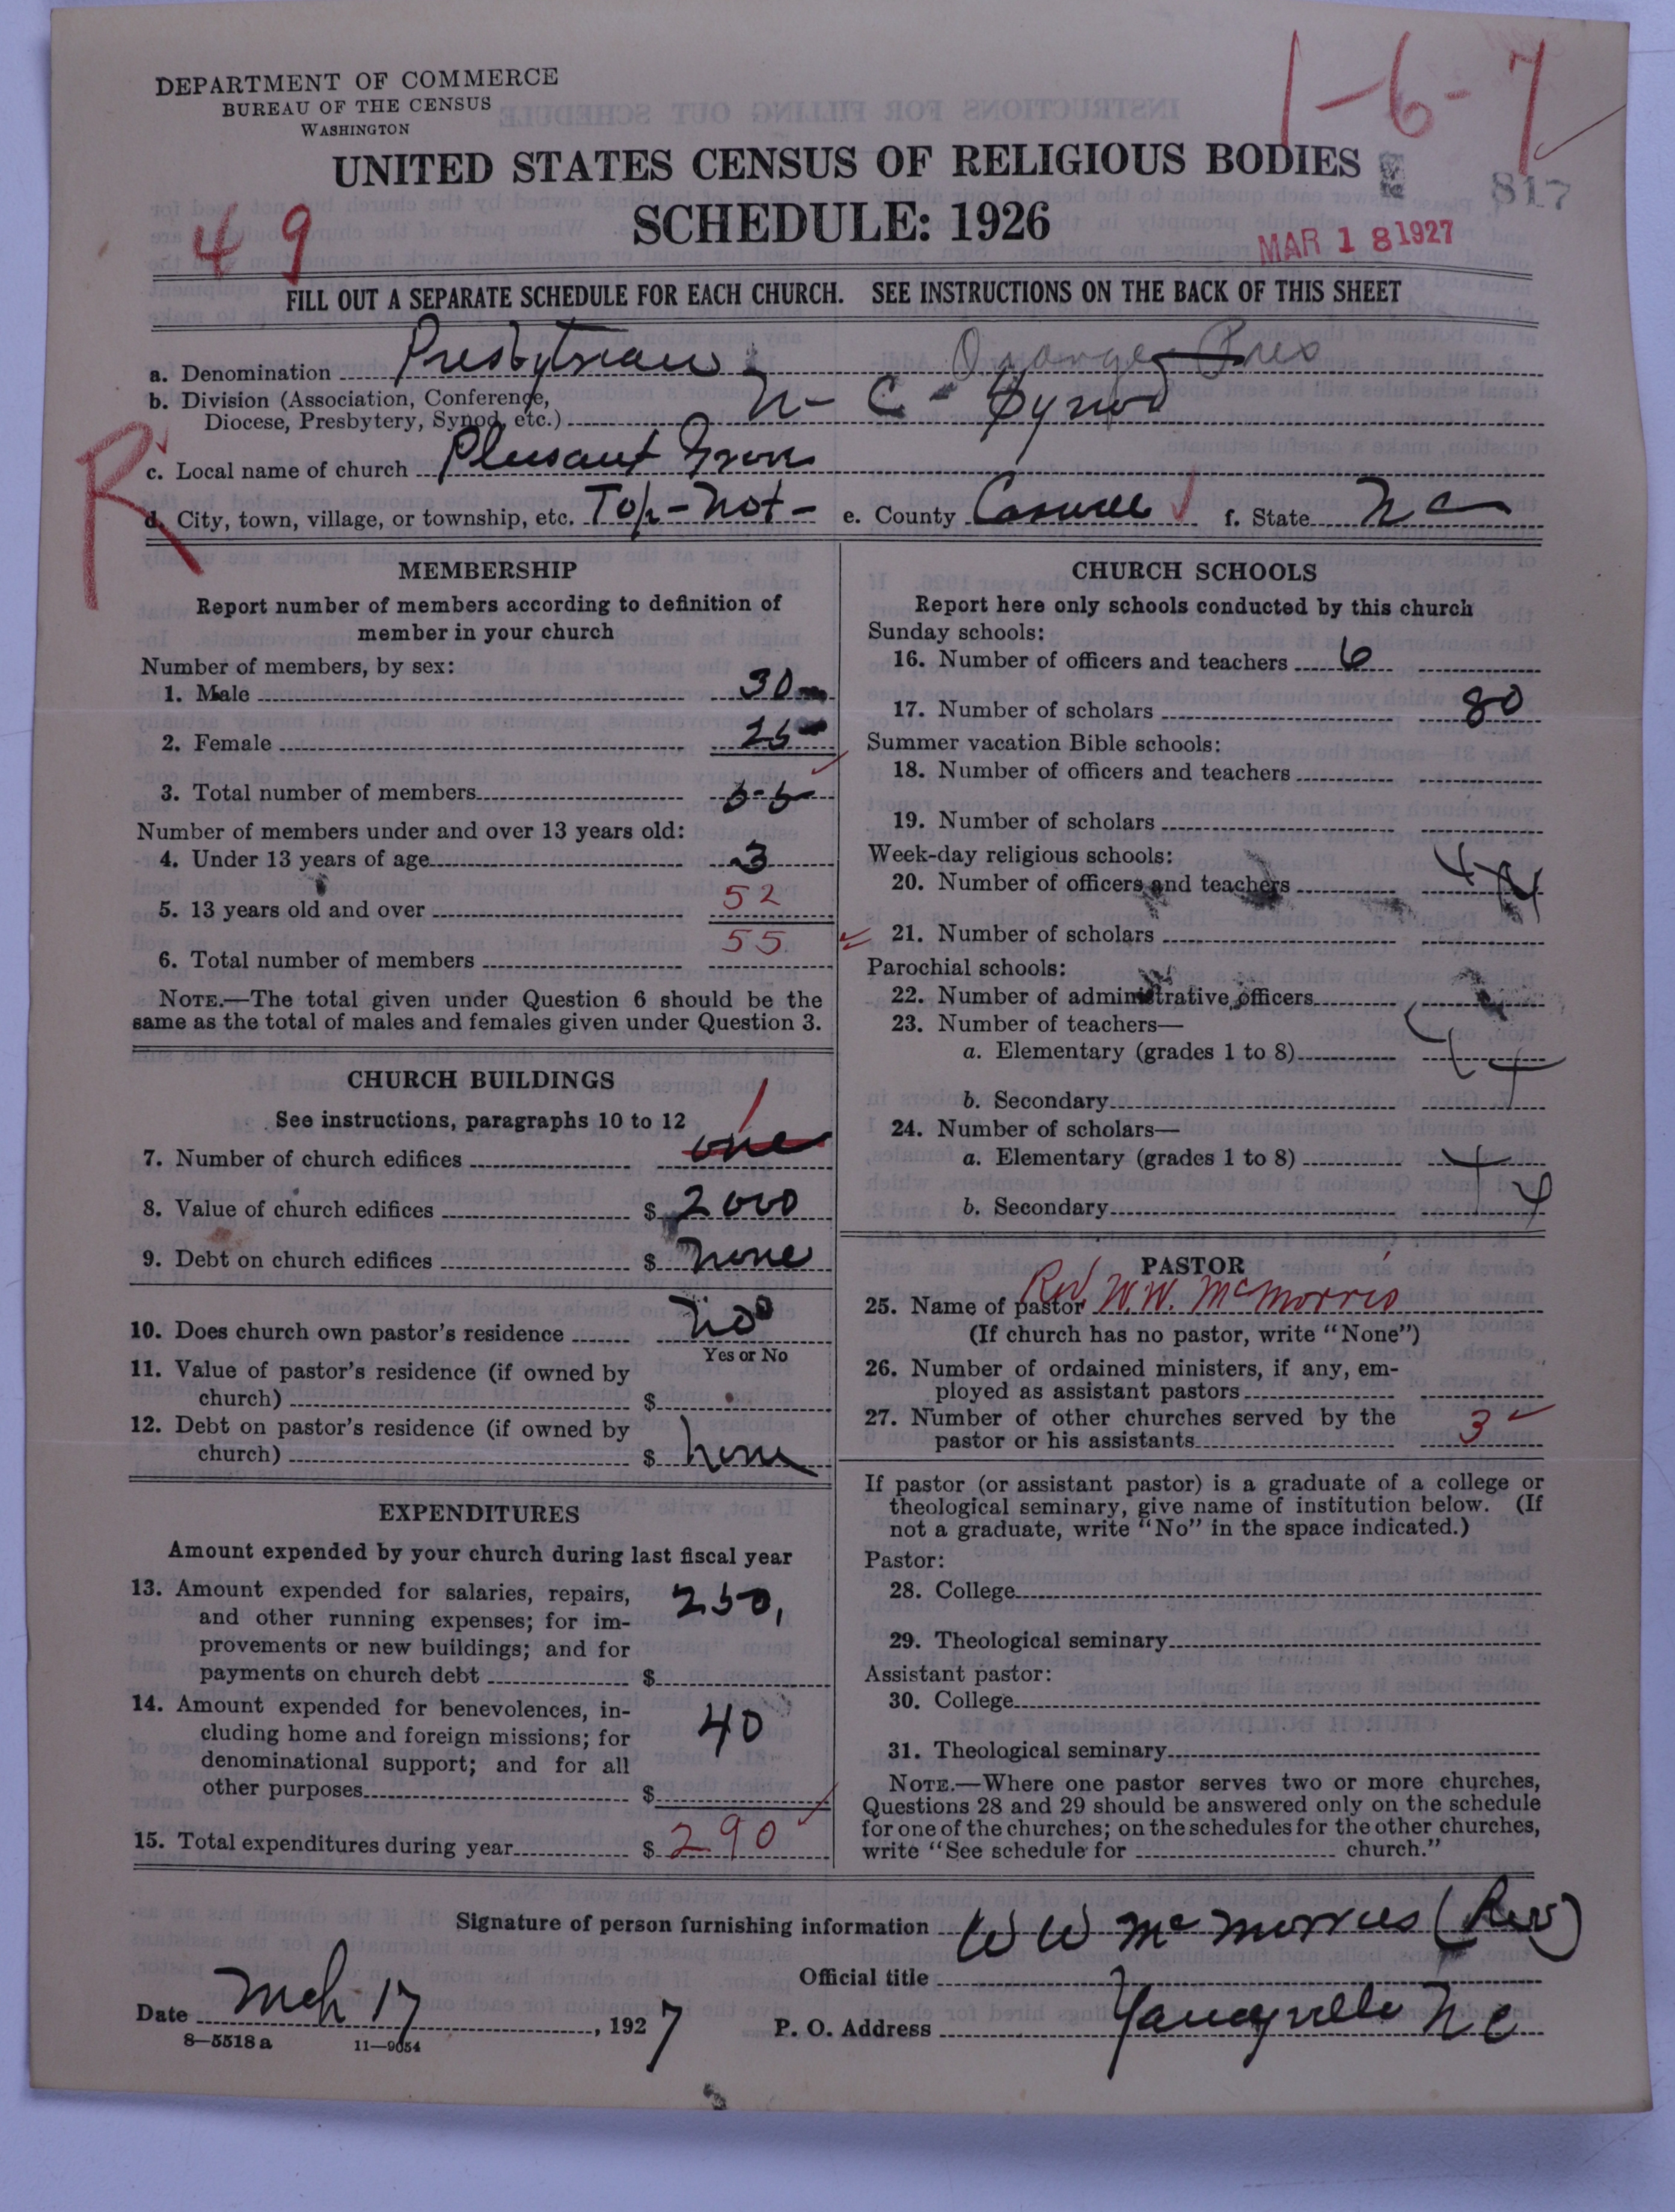 DEPARTMENT OF COMMERCE
BUREAU OF THE CENSUS
WASHINGTON
1-6-7
UNITED STATES CENSUS OF RELIGIOUS BODIES
817
SCHEDULE: 1926
49
MAR 18 1927
FILL OUT A SEPARATE SCHEDULE FOR EACH CHURCH. SEE INSTRUCTIONS ON THE BACK OF THIS SHEET
a. Denomination Presbyterian Orange Pres
b. Division (Association, Conference,
Diocese, Presbytery, Synod, etc.) N- C- Synod
R
c. Local name of church Pleasant Grove
d. City, town, village, or township, etc. Top-Not- e. County Caswell f. State N C
MEMBERSHIP
Report number of members according to definition of
member in your church
Number of members, by sex:
1. Male 30
2. Female 25
3. Total number of members 55
Number of members under and over 13 years old:
4. Under 13 years of age 3
5. 13 years old and over 52
6. Total number of members 55
NOTE.—The total given under Question 6 should be the
same as the total of males and females given under Question 3.
CHURCH BUILDINGS
See instructions, paragraphs 10 to 12
7. Number of church edifices one 1
8. Value of church edifices $ 2000
9. Debt on church edifices $ none
10. Does church own pastor's residence No
Yes or No
11. Value of pastor's residence (if owned by
church) $
12. Debt on pastor's residence (if owned by
church) $ none
EXPENDITURES
Amount expended by your church during last fiscal year
13. Amount expended for salaries, repairs,
and other running expenses; for im-
provements or new buildings; and for
payments on church debt $ 250,
14. Amount expended for benevolences, in-
cluding home and foreign missions; for
denominational support; and for all
other purposes $ 40
15. Total expenditures during year $ 290
CHURCH SCHOOLS
Report here only schools conducted by this church
Sunday schools:
16. Number of officers and teachers 6
17. Number of scholars 80
Summer vacation Bible schools:
18. Number of officers and teachers
19. Number of scholars
Week-day religious schools:
20. Number of officers and teachers
21. Number of scholars
Parochial schools:
22. Number of administrative officers
23. Number of teachers—
a. Elementary (grades 1 to 8)
b. Secondary
24. Number of scholars—
a. Elementary (grades 1 to 8)
b. Secondary
PASTOR
25. Name of pastor Rev W. W. McMorris
(If church has no pastor, write "None")
26. Number of ordained ministers, if any, em-
ployed as assistant pastors
27. Number of other churches served by the
pastor or his assistants 3
If pastor (or assistant pastor) is a graduate of a college or
theological seminary, give name of institution below. (If
not a graduate, write "No" in the space indicated.)
Pastor:
28. College
29. Theological seminary
Assistant pastor:
30. College
31. Theological seminary
NOTE.—Where one pastor serves two or more churches,
Questions 28 and 29 should be answered only on the schedule
for one of the churches; on the schedules for the other churches,
write "See schedule for church."
Signature of person furnishing information W W McMorries (Rev)
Official title
Date Mch 17, 1927
P. O. Address Yanceyville N C
8—5518a 11—9054